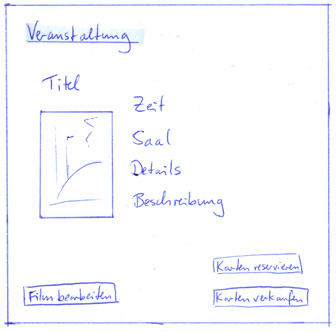 Veranstaltung
Titel
Zeit
Saal
Details
Beschreibung
Karten reservieren
Film bearbeiten
Karten verkaufen